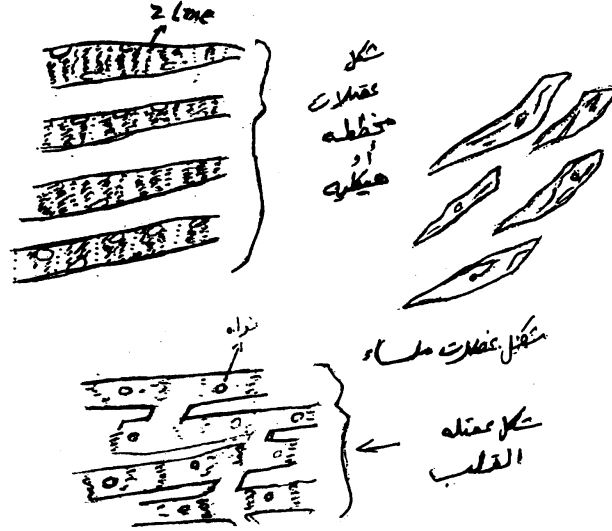 Z Line
شكل
عضلات
مخططه
أو
هيكليه
شكل عضلات ملساء
نواه
شكل عضله
القلب